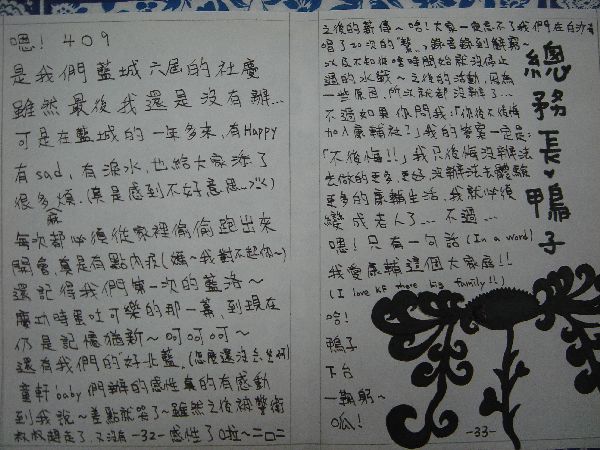 嗯! 409
是我們藍城六屆的社慶
雖然最後我還是沒有辦...
可是在藍城的一年多來,有Happy
有sad,有淚水,也給大家添了
很多麻煩.(真是感到不好意思...>"<)
每次都必須從家裡偷偷跑出來
開會真是有點內疚(媽~我對不起你~)
還記得我們第一次的藍洛~
慶功時里吐可樂的那一幕,到現在
仍是記憶猶新~呵呵呵~
還有我們的"好北藍.(怎麼還沒去
童軒baby們辦的感性真的有感動
到我說~差點就哭了~雖然之後被警衛
叔叔趕走了,又沒有 感性了啦~=口=
-32-
之後的薪傳~哈!大家一定忘不了我們在白沙
唱了20次的 錄音錄到
以及不知從啥時開始就沒停止
過的水戰~之後的活動,因為
一些原因,所以就都沒辦了...
不過如果你問我:「你後不後悔
加入康輔社?」我的答案一定是:
「不後悔!!」我只後悔沒辦法
去做的更多更好,沒辦法去體驗
更多的康輔生活,我就必須
變成老人了...不過...
嗯!只有一句話(In a word)
我愛康輔這個大家庭!!
(I love KF there big family!!)
哈!
鴨子
下台
一鞠躬~
呱!
總務長♥鴨子
-33-